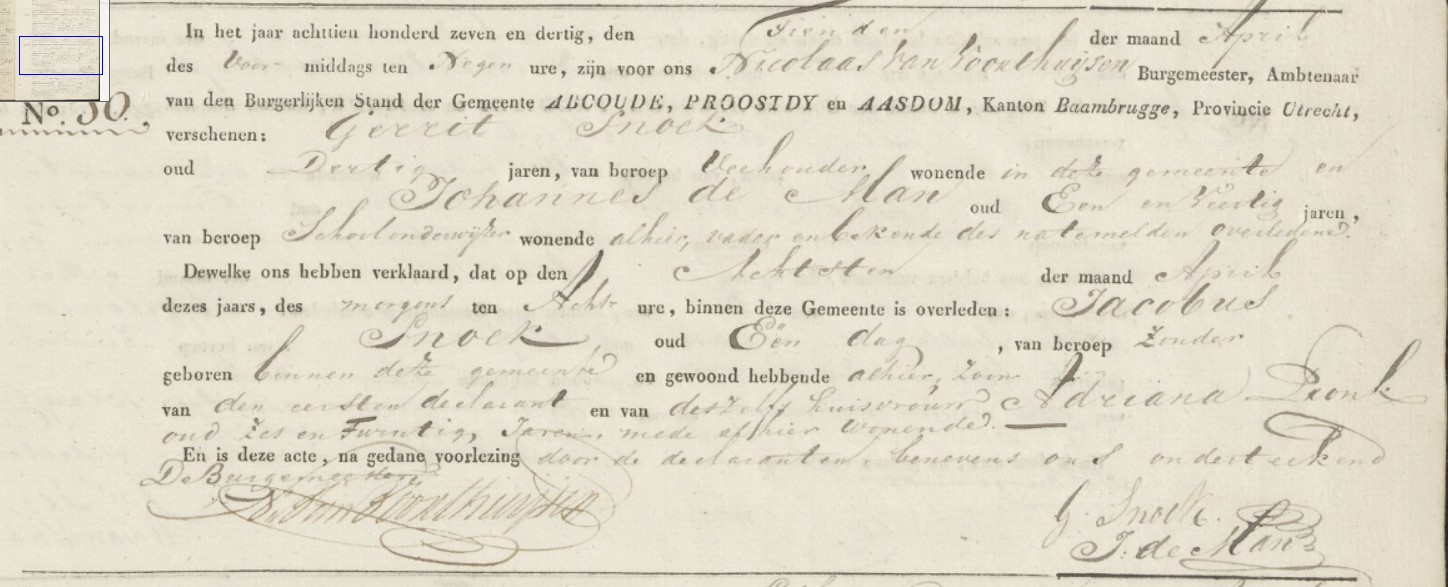 In het jaar achttien honderd zeven en dertig, den Tienden der maand April
des Voor middags ten Negen ure, zijn voor ons Nicolaas van Voorthuijsen Burgemeester, Ambtenaar
No. 30. van den Burgerlijken Stand der Gemeente ABCOUDE, PROOSTDY en AASDOM, Kanton Baambrugge, Provincie Utrecht,
verschenen: Gerrit Snoek
oud Dertig jaren, van beroep Veehouder wonende in deze gemeente en
Johannes de Man oud Een en Veertig jaren,
van beroep Schoolonderwijzer wonende alhier, vader en bekende des natemelden overledene.
Dewelke ons hebben verklaard, dat op den Achtsten der maand April
dezes jaars, des morgens ten Acht ure, binnen deze Gemeente is overleden: Jacobus
Snoek oud Eén dag, van beroep zonder
geboren binnen deze gemeente en gewoond hebbende alhier, zoon
van den eersten declarant en van deszelfs huisvrouw Adriana Pronk
oud Zes en Twintig, Jaren, mede alhier wonende.
En is deze acte, na gedane voorlezing door de declaranten, benevens ons onderteekend
De Burgemeester
N. van Voorthuijsen
G. Snoek.
J. de Man